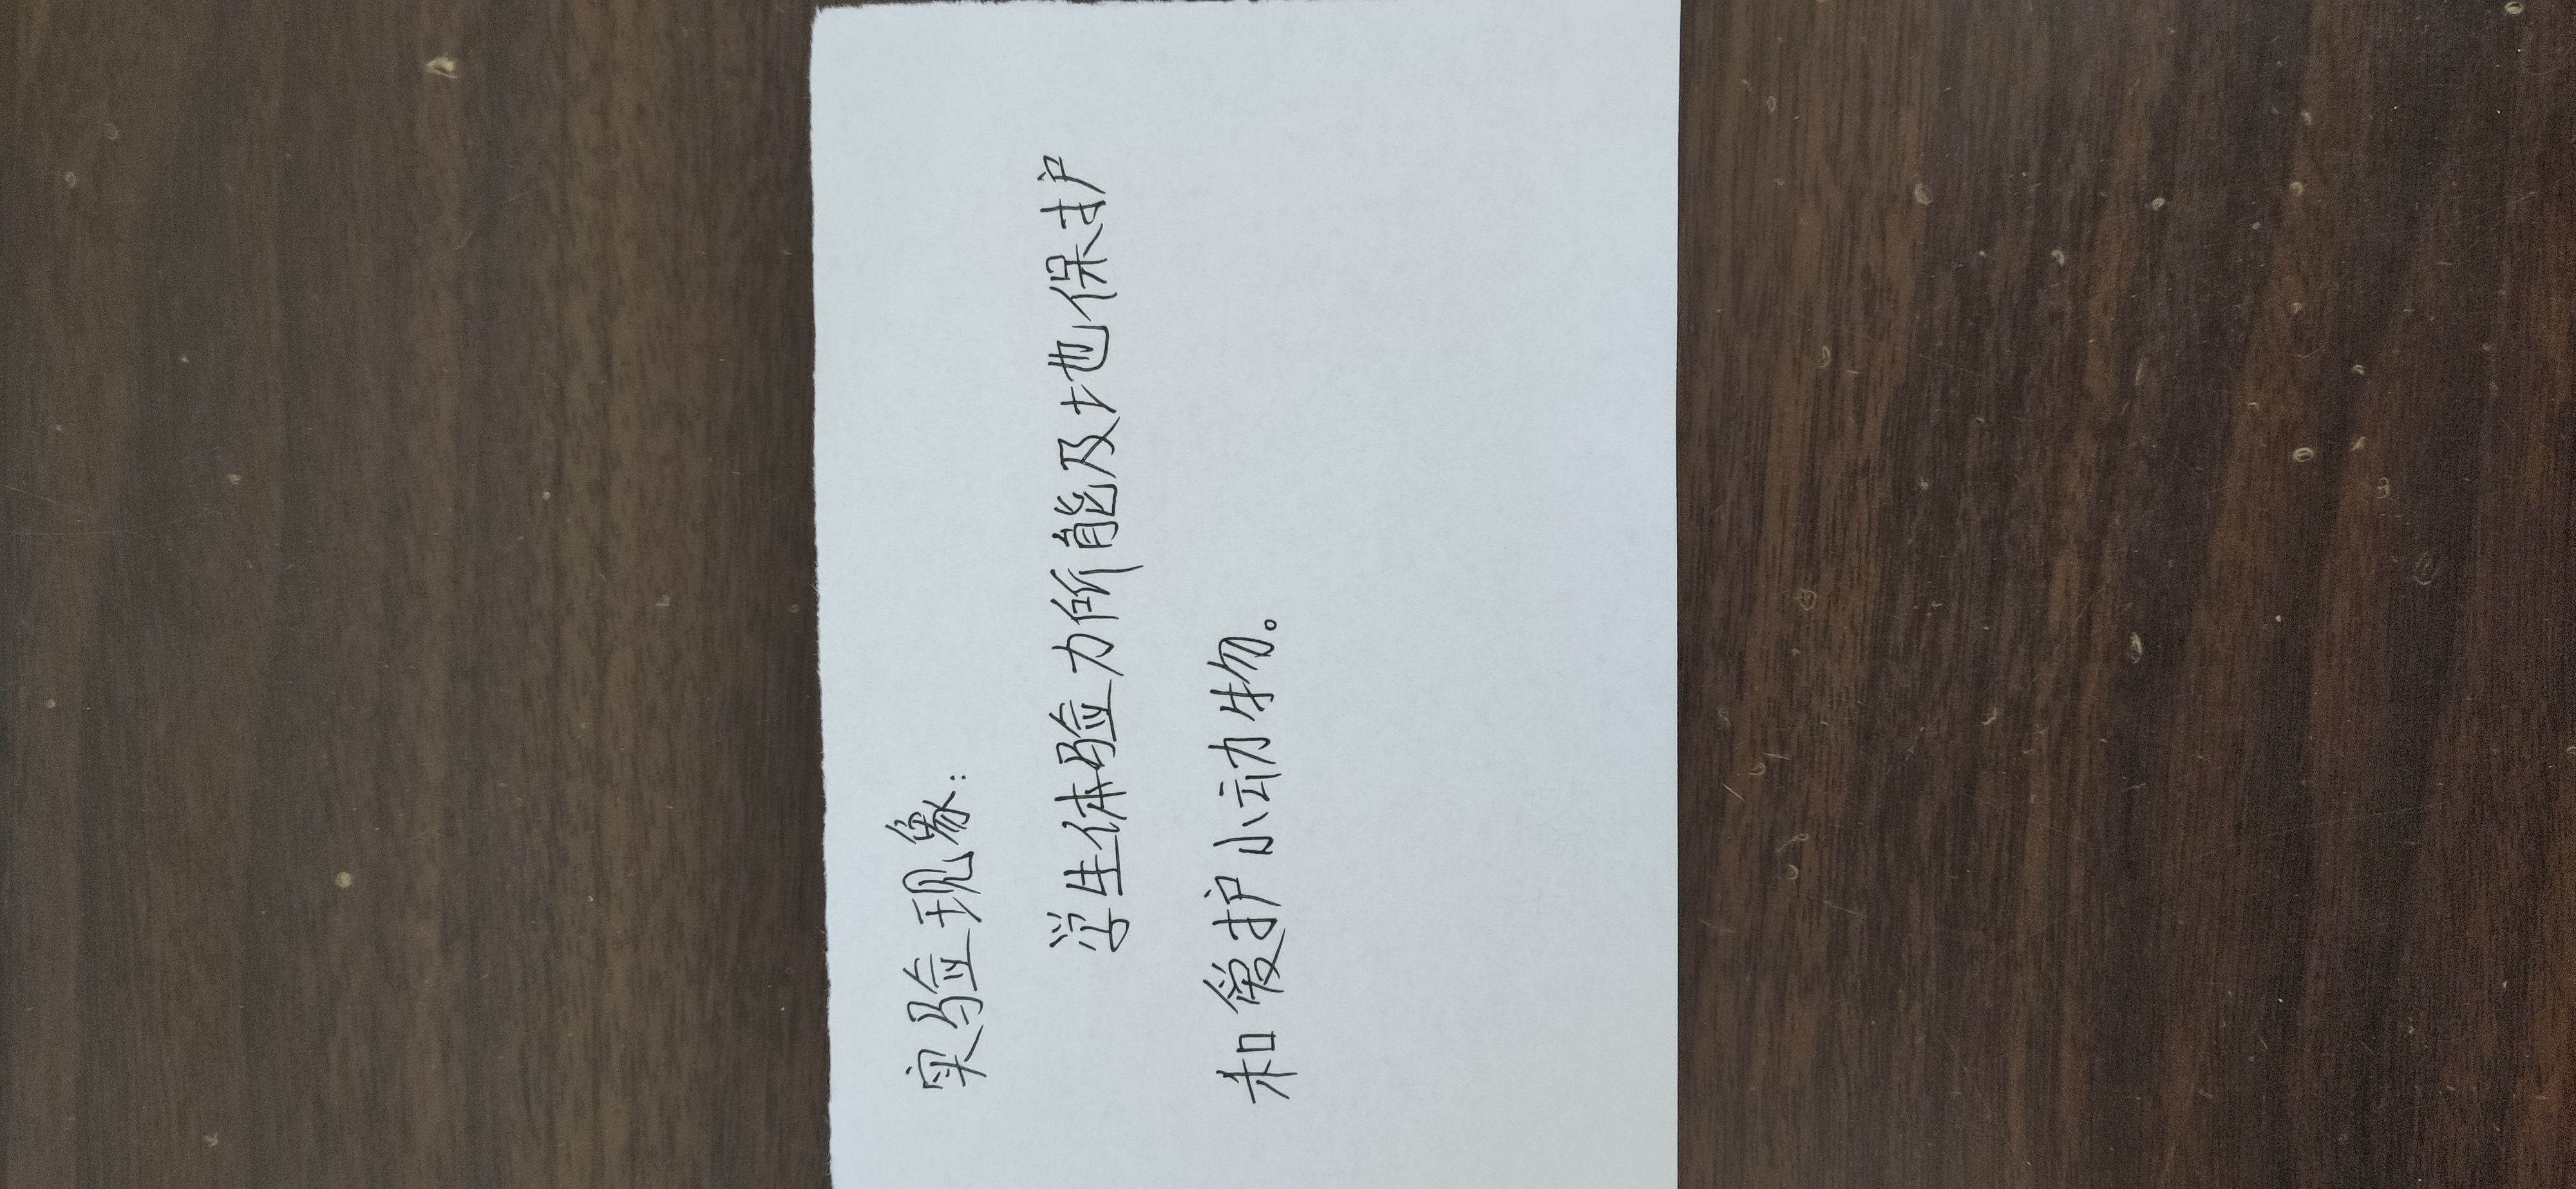 实验现象:
学生体验力所能及地保护
和爱护小动物。